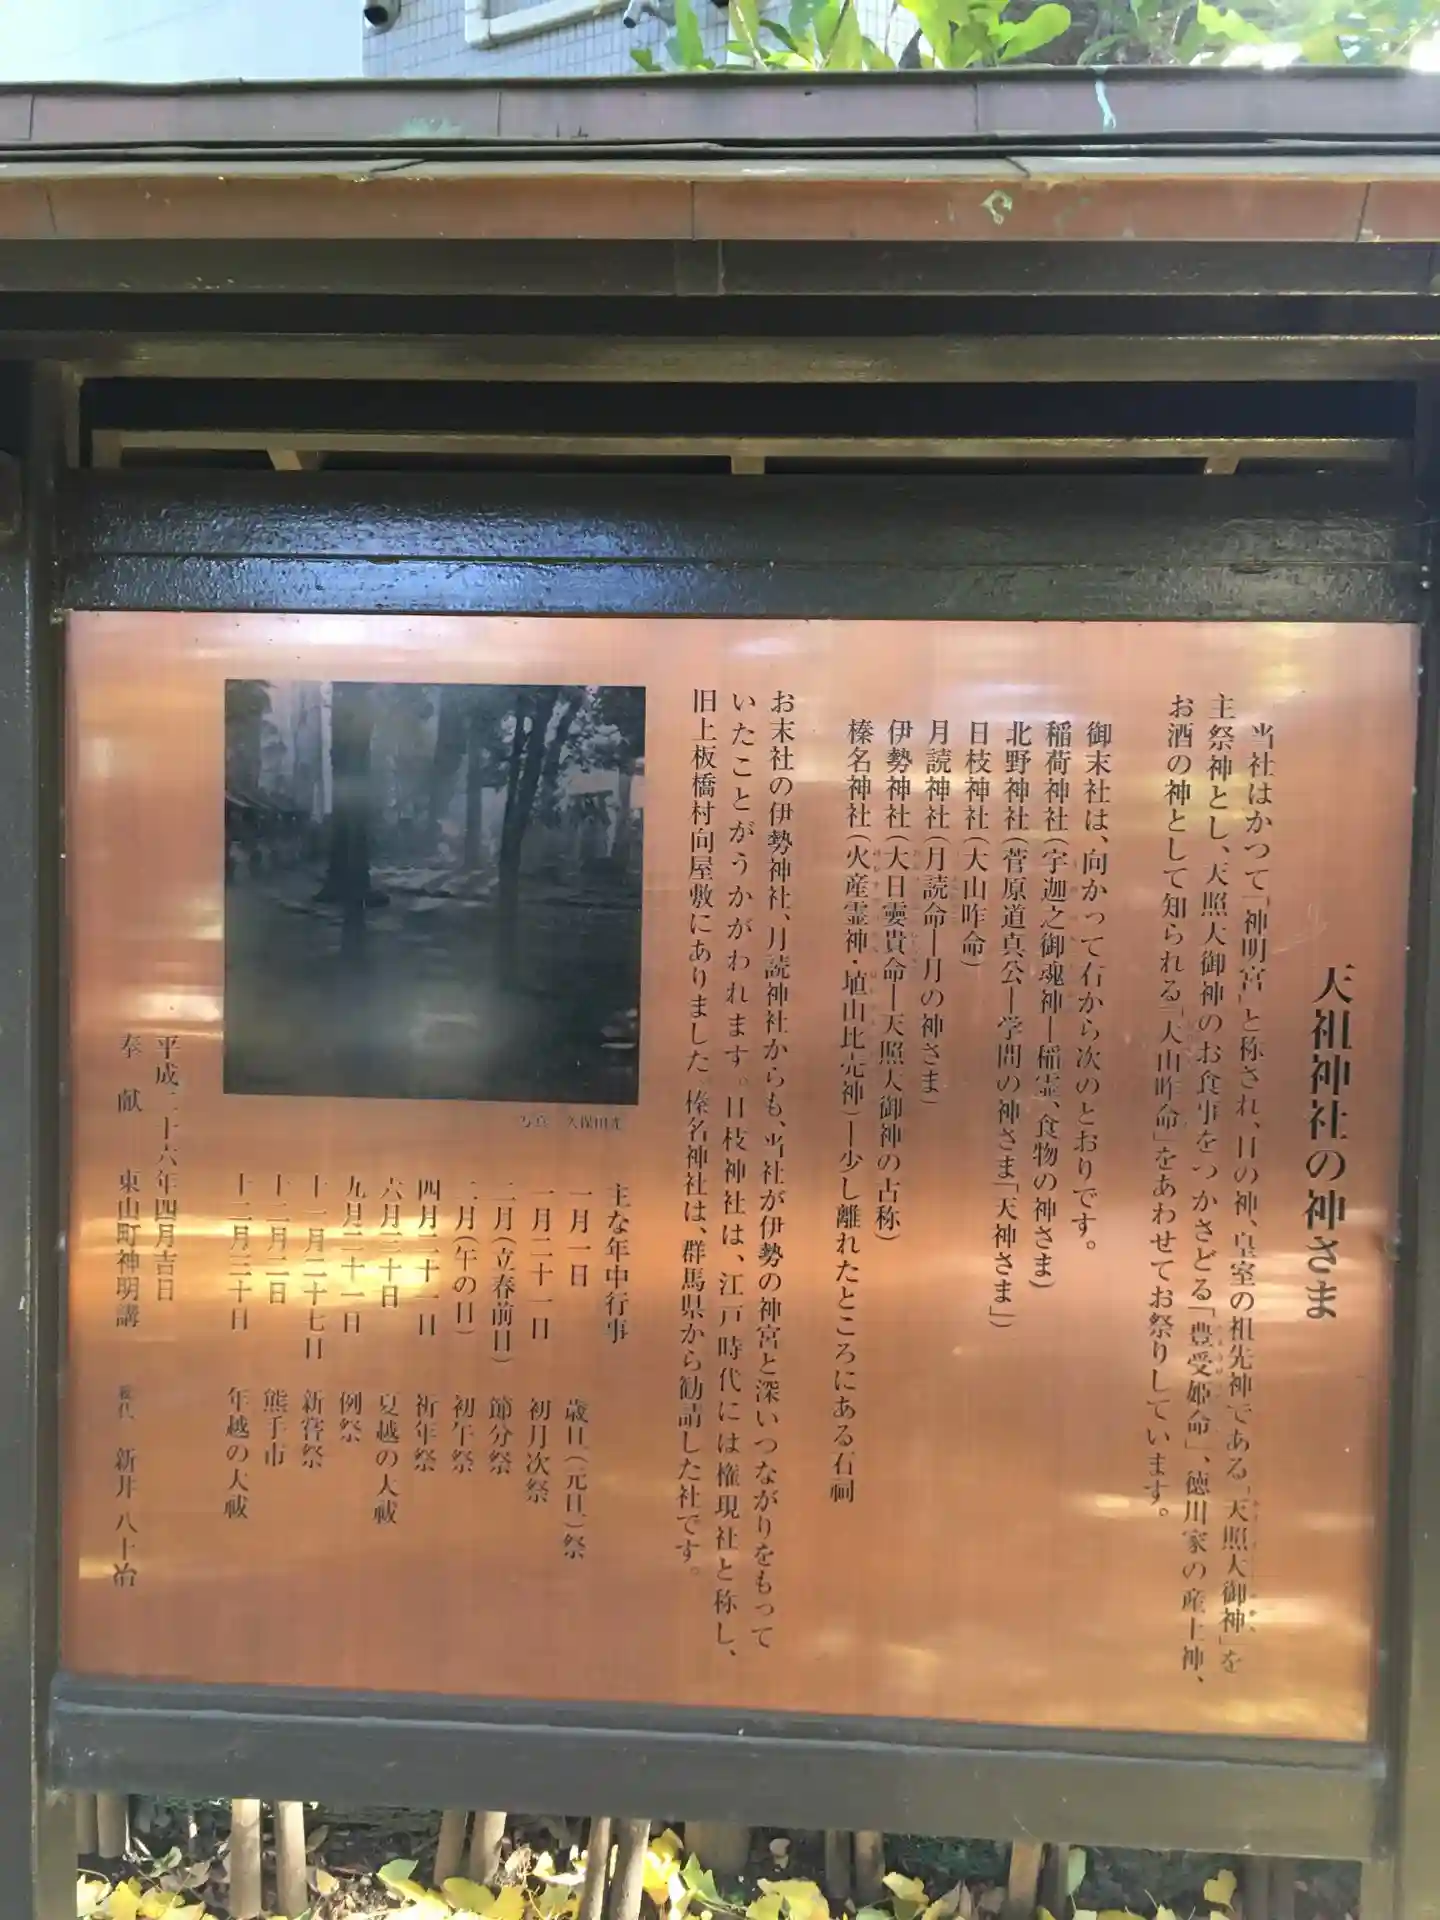 天祖神社の神さま
当社はかつて「神明宮」と称され、日の神、皇室の祖先神である「天照大御神」を
主祭神とし、天照大御神のお食事をつかさどる「豊受姫命」、徳川家の産土神、
お酒の神として知られる「大山咋命」をあわせてお祭りしています。
御末社は、向かって右から次のとおりです。
稲荷神社(宇迦之御魂神―稲霊、食物の神さま)
北野神社(菅原道真公―学問の神さま「天神さま」)
日枝神社(大山咋命)
月読神社(月読命―月の神さま)
伊勢神社(大日孁貴命―天照大御神の古称)
榛名神社(火産霊神・埴山比売神)―少し離れたところにある石祠
お末社の伊勢神社、月読神社からも、当社が伊勢の神宮と深いつながりをもって
いたことがうかがわれます。日枝神社は、江戸時代には権現社と称し、
旧上板橋村向屋敷にありました。榛名神社は、群馬県から勧請した社です。
主な年中行事
一月一日 歳旦(元旦)祭
一月二十一日 初月次祭
二月(立春前日) 節分祭
二月(午の日) 初午祭
四月二十一日 祈年祭
六月三十日 夏越の大祓
九月二十一日 例祭
十一月二十七日 新嘗祭
十二月二日 熊手市
十二月三十日 年越の大祓
平成二十六年四月吉日
奉献 東山町神明講 総代 新井 八十治